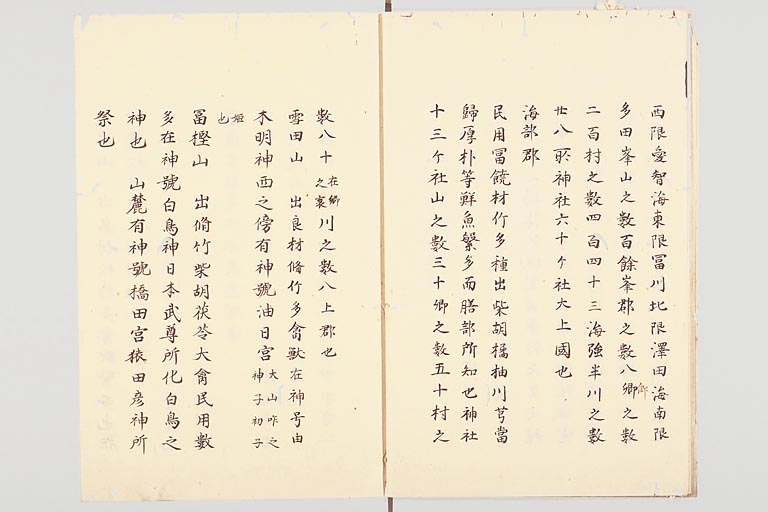 西限愛智海東限冨川北限澤田海南限
多田峯山之數百餘峯郡之數八鄉之數
二百村之數四百四十三海強半川之數
廿八所神社六十ケ社大上國也
海部郡
民用冨饒材竹多種出柴胡橘柚川芎當
歸厚朴等鮮魚繁多而膳部所知也神社
十三ケ社山之數三十鄉之數五十村之
數八十在鄉之裏川之數八上郡也
雪田山 出良材脩竹多禽獸在神号由
木明神西之傍有神號油日宮大山咋之神子初子
姫也
冨樫山 出脩竹柴胡茯苓大禽民用數
多在神號白鳥神日本武尊所化白鳥之
神也 山麓有神號橋田宮猿田彦神所
祭也